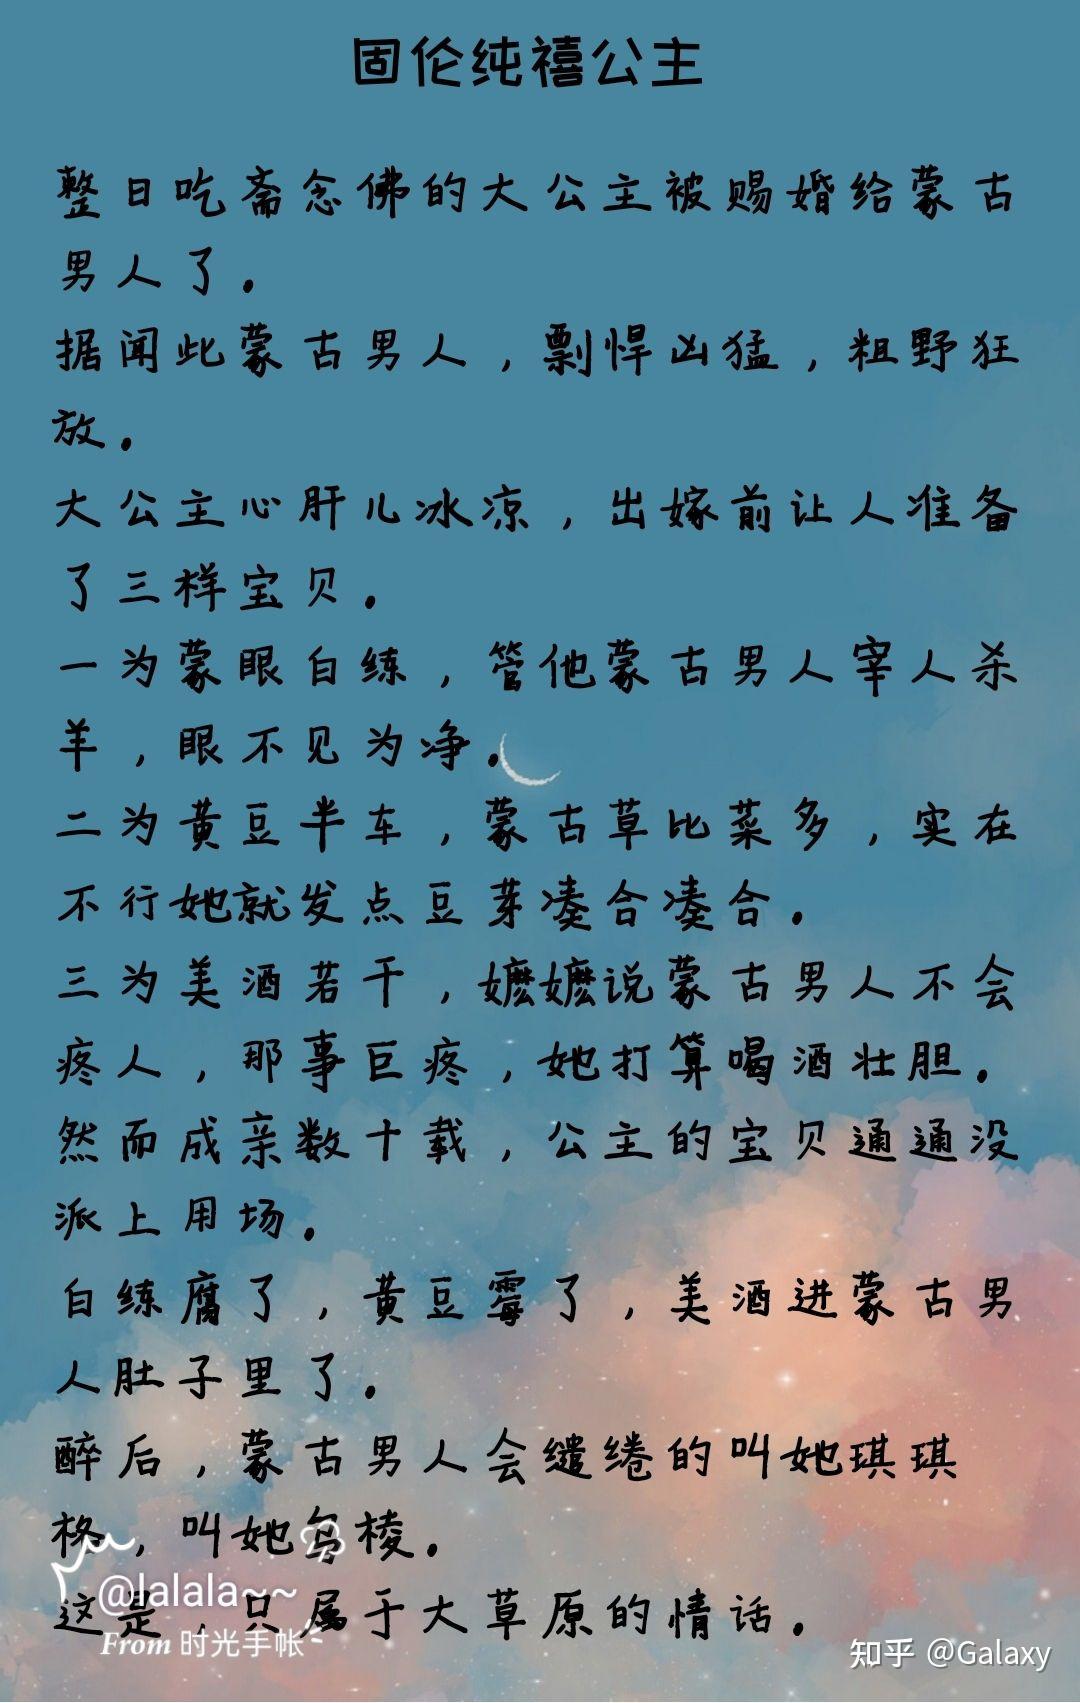 固伦纯禧公主
整日吃斋念佛的大公主被赐婚给蒙古
男人了。
据闻此蒙古男人，剽悍凶猛，粗野狂
放。
大公主心肝儿冰凉，出嫁前让人准备
了三样宝贝。
一为蒙眼白练，管他蒙古男人宰人杀
羊，眼不见为净。
二为黄豆半车，蒙古草比菜多，实在
不行她就发点豆芽凑合凑合。
三为美酒若干，嬷嬷说蒙古男人不会
疼人，那事巨疼，她打算喝酒壮胆。
然而成亲数十载，公主的宝贝通通没
派上用场。
白练腐了，黄豆霉了，美酒进蒙古男
人肚子里了。
醉后，蒙古男人会缱绻的叫她琪琪
格，叫她乌棱。
这是，只属于大草原的情话。
@lalala~~
From 时光手帐
知乎 @Galaxy